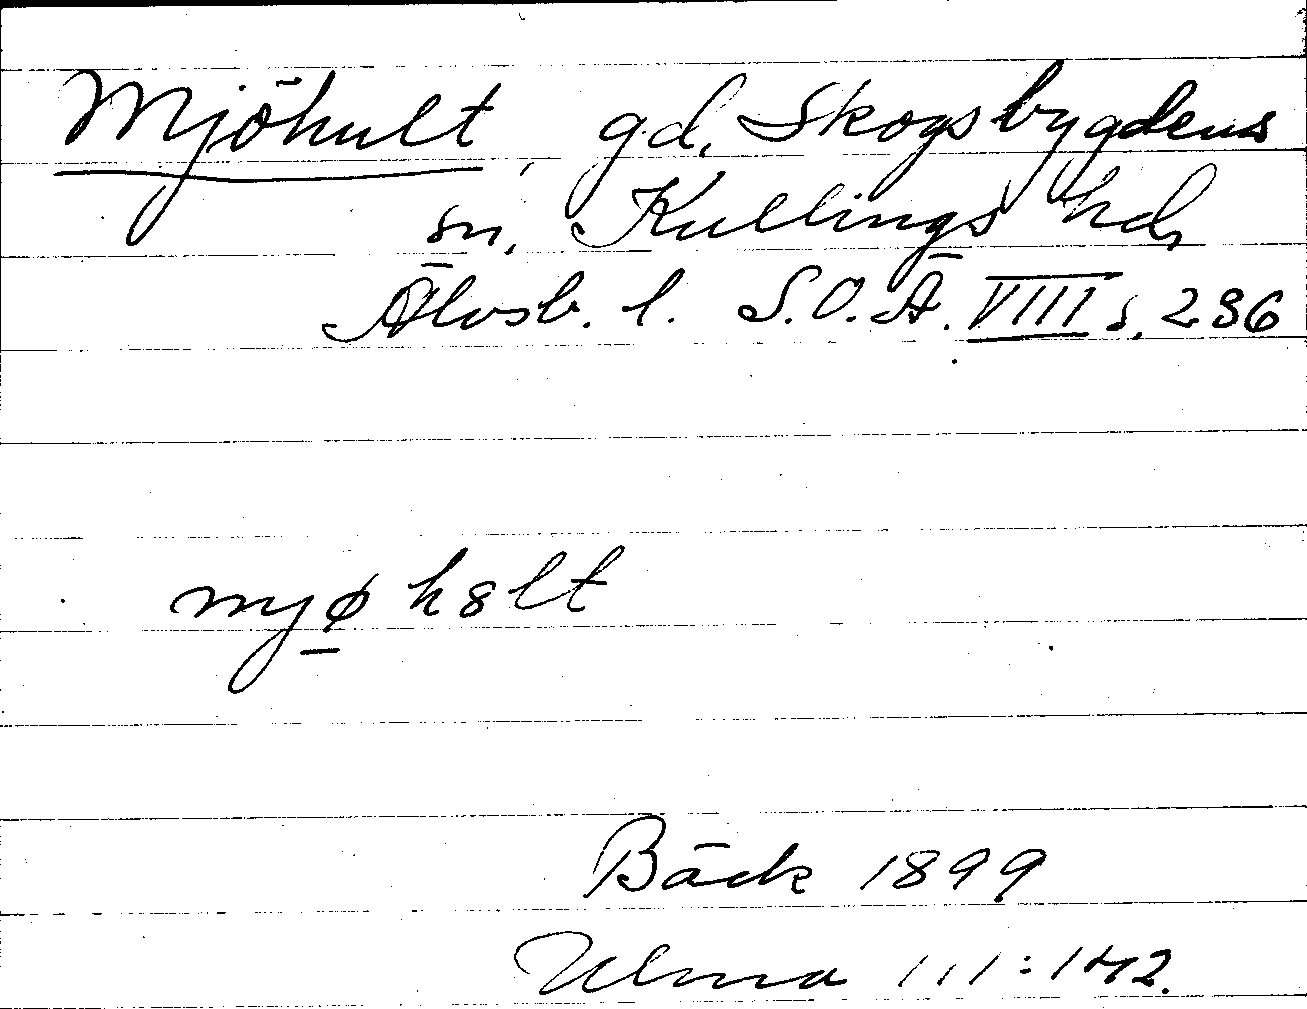 Mjöhult, gd, Skogsbygdens
sn, Kullings hd,
Älvsb. l. S.O.Ä. VIII s. 236
mjø̱ h8lt
Bäck 1899
Ulma 111:142.